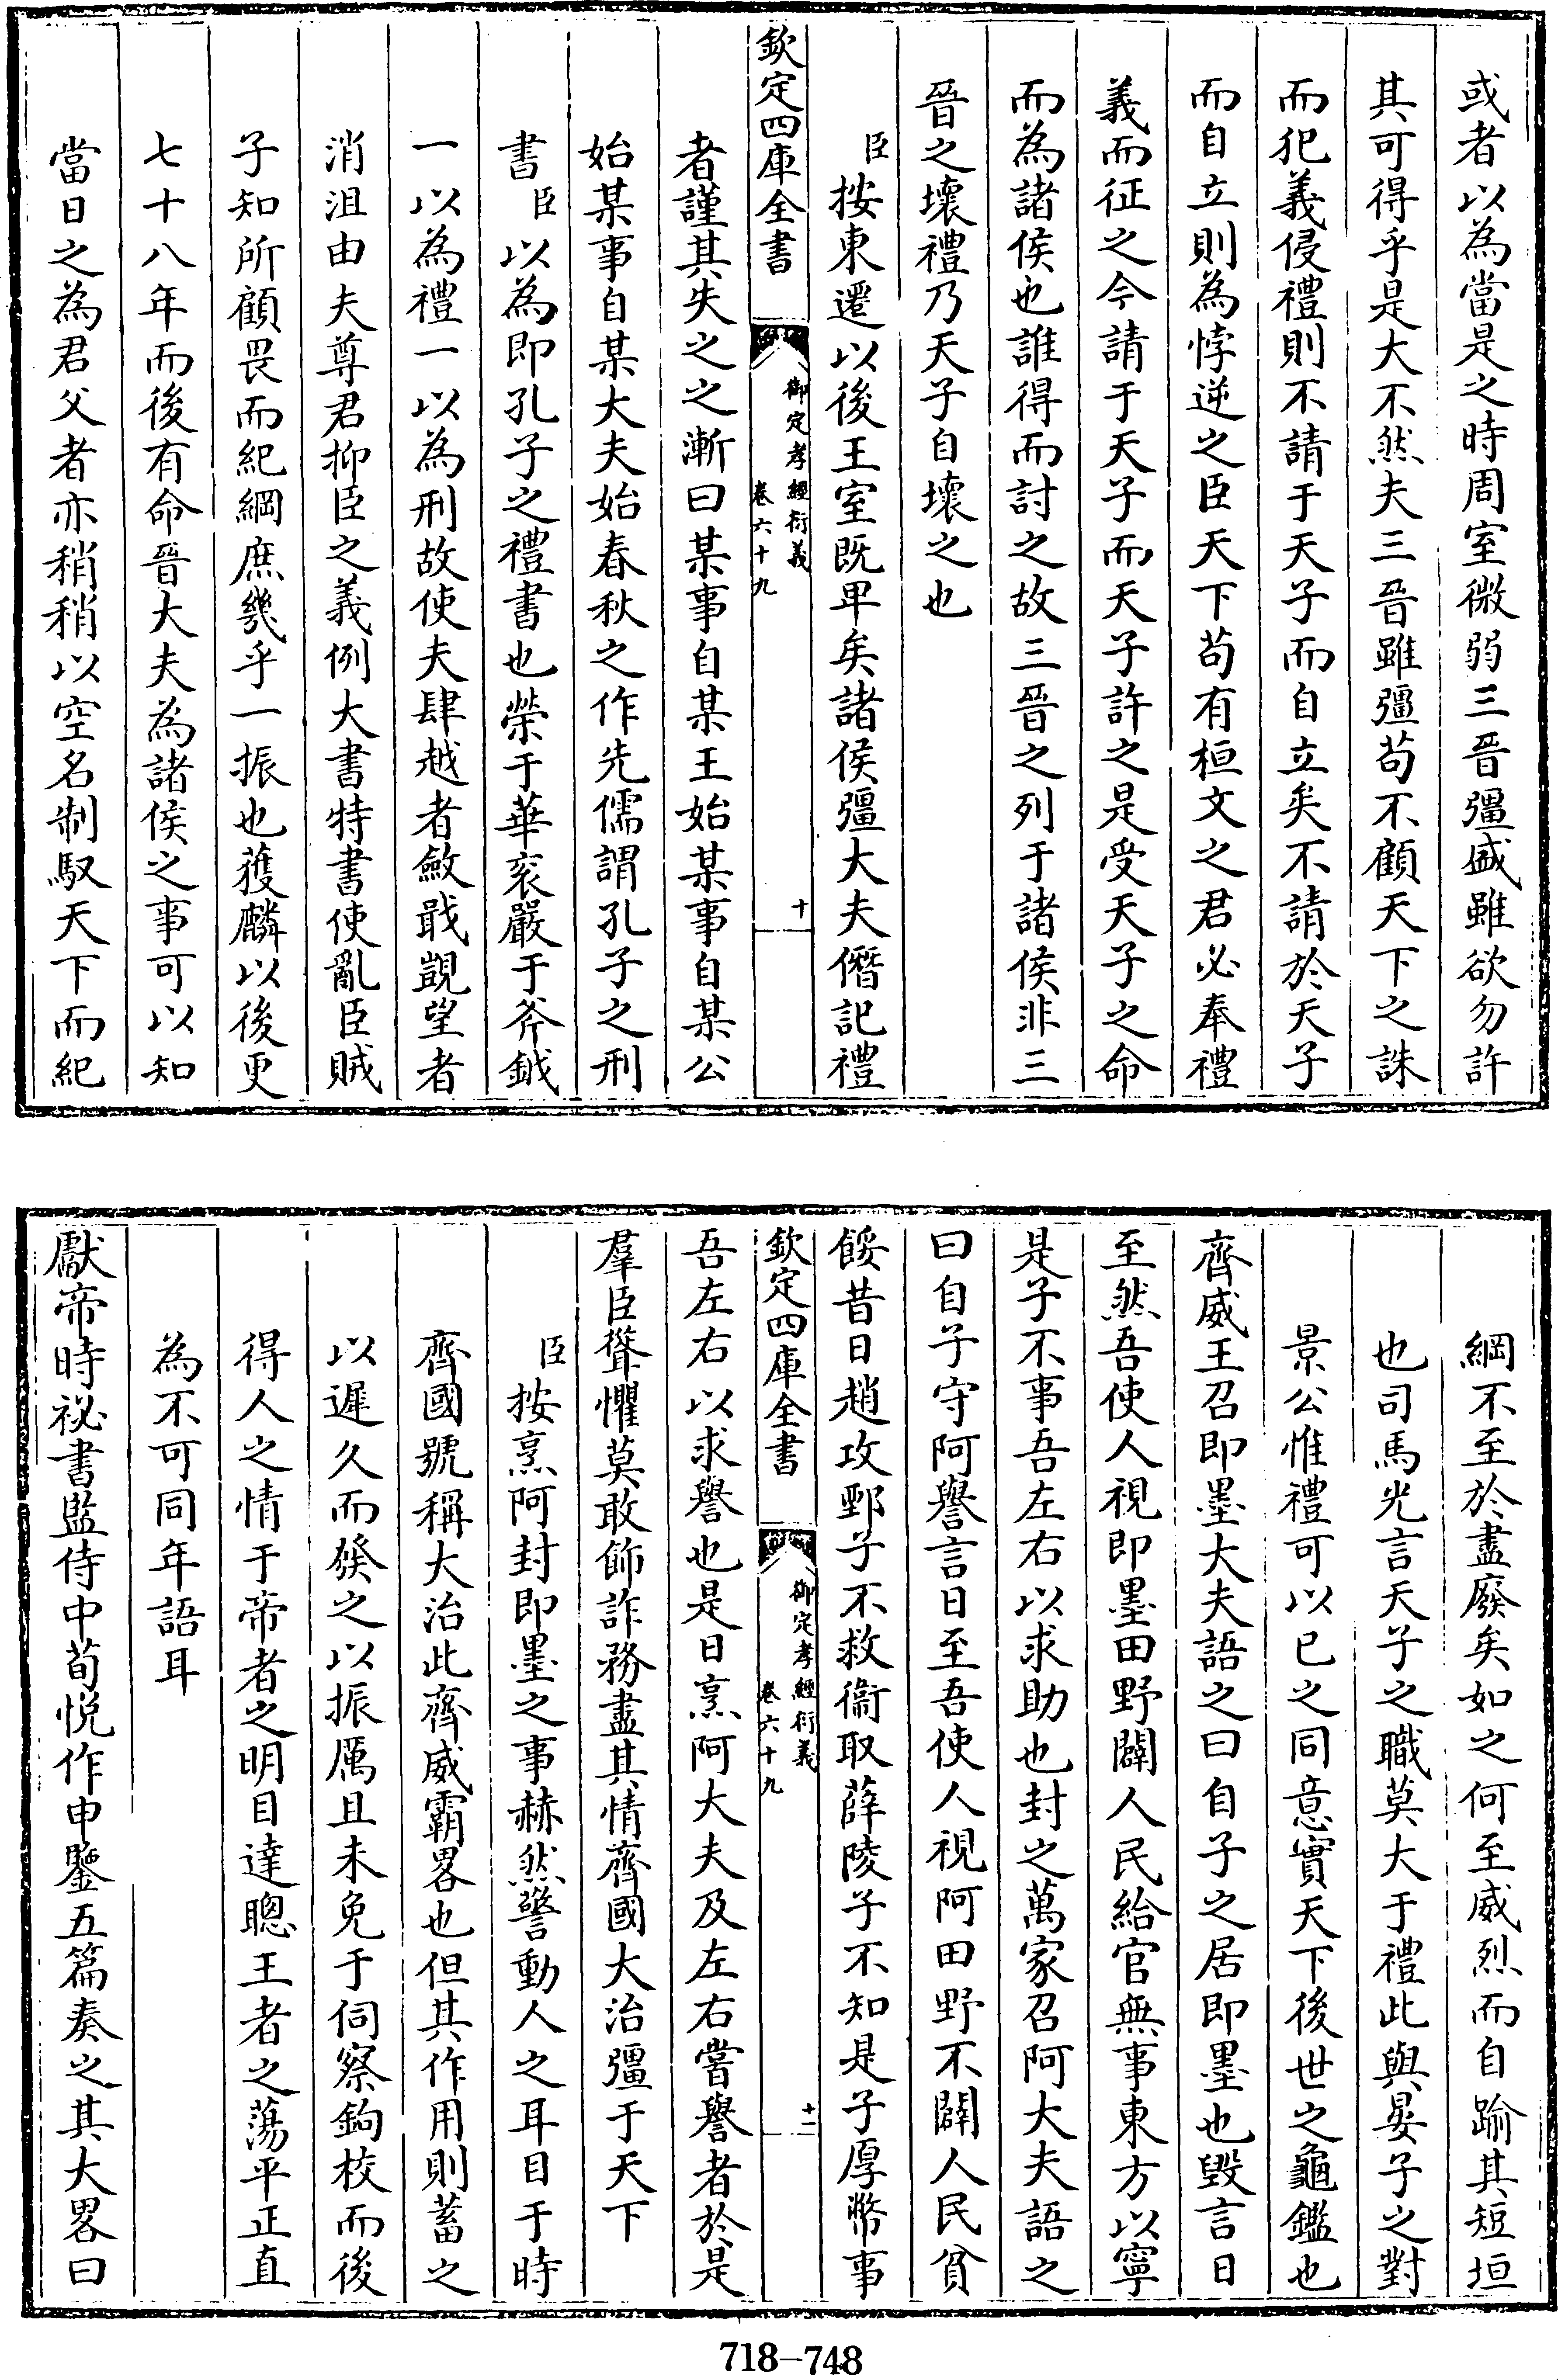 或者以為當是之時周室微弱三晉彊盛雖欲勿許
其可得乎是大不然夫三晉雖彊苟不顧天下之誅
而犯義侵禮則不請于天子而自立矣不請於天子
而自立則為悖逆之臣天下苟有桓文之君必奉禮
義而征之今請于天子而天子許之是受天子之命
而為諸侯也誰得而討之故三晉之列于諸侯非三
晉之壞禮乃天子自壞之也
臣按東遷以後王室既卑矣諸侯彊大夫僭記禮
欽定四庫全書
御定孝經衍義
卷六十九
十
者謹其失之之漸曰某事自某王始某事自某公
始某事自某大夫始春秋之作先儒謂孔子之刑
書臣以為即孔子之禮書也榮于華袞嚴于斧鉞
一以為禮一以為刑故使夫肆越者斂戢覬望者
消沮由夫尊君抑臣之義例大書特書使亂臣賊
子知所顧畏而紀綱庶幾乎一振也獲麟以後更
七十八年而後有命晉大夫為諸侯之事可以知
當日之為君父者亦稍稍以空名制馭天下而紀
綱不至於盡廢矣如之何至威烈而自踰其短垣
也司馬光言天子之職莫大于禮此與晏子之對
景公惟禮可以已之同意實天下後世之龜鑑也
齊威王召即墨大夫語之曰自子之居即墨也毀言日
至然吾使人視即墨田野闢人民給官無事東方以寧
是子不事吾左右以求助也封之萬家召阿大夫語之
曰自子守阿譽言日至吾使人視阿田野不闢人民貧
餒昔日趙攻鄄子不救衞取薛陵子不知是子厚幣事
欽定四庫全書
御定孝經衍義
卷六十九
十一
吾左右以求譽也是日烹阿大夫及左右嘗譽者於是
羣臣聳懼莫敢飾詐務盡其情齊國大治彊于天下
臣按烹阿封即墨之事赫然警動人之耳目于時
齊國號稱大治此齊威霸畧也但其作用則蓄之
以遲久而發之以振厲且未免于伺察鉤校而後
得人之情于帝者之明目達聰王者之蕩平正直
為不可同年語耳
獻帝時祕書監侍中荀悅作申鑒五篇奏之其大畧曰
718-748